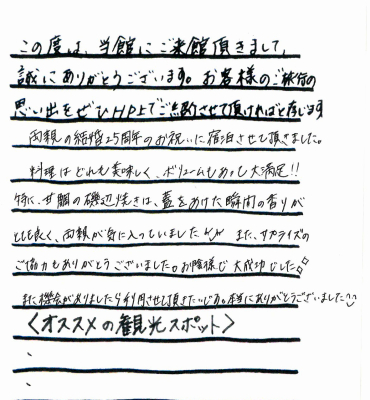 この度は、当館にご来館頂きまして、
誠にありがとうございます。お客様のご旅行の
思い出をぜひHP上でご紹介させて頂ければと存じます
両親の結婚25周年のお祝いに宿泊させて頂きました。
料理はどれも美味しく、ボリュームもあって大満足!!
特に、甘鯛の磯辺焼きは、蓋をあけた瞬間の香りが
とても良く、両親が気に入っていました また、サプライズの
ご協力もありがとうございました。お陰様で大成功でした
また機会がありましたら利用させて頂きたいです。本当にありがとうございました
<オススメの観光スポット>
・
・